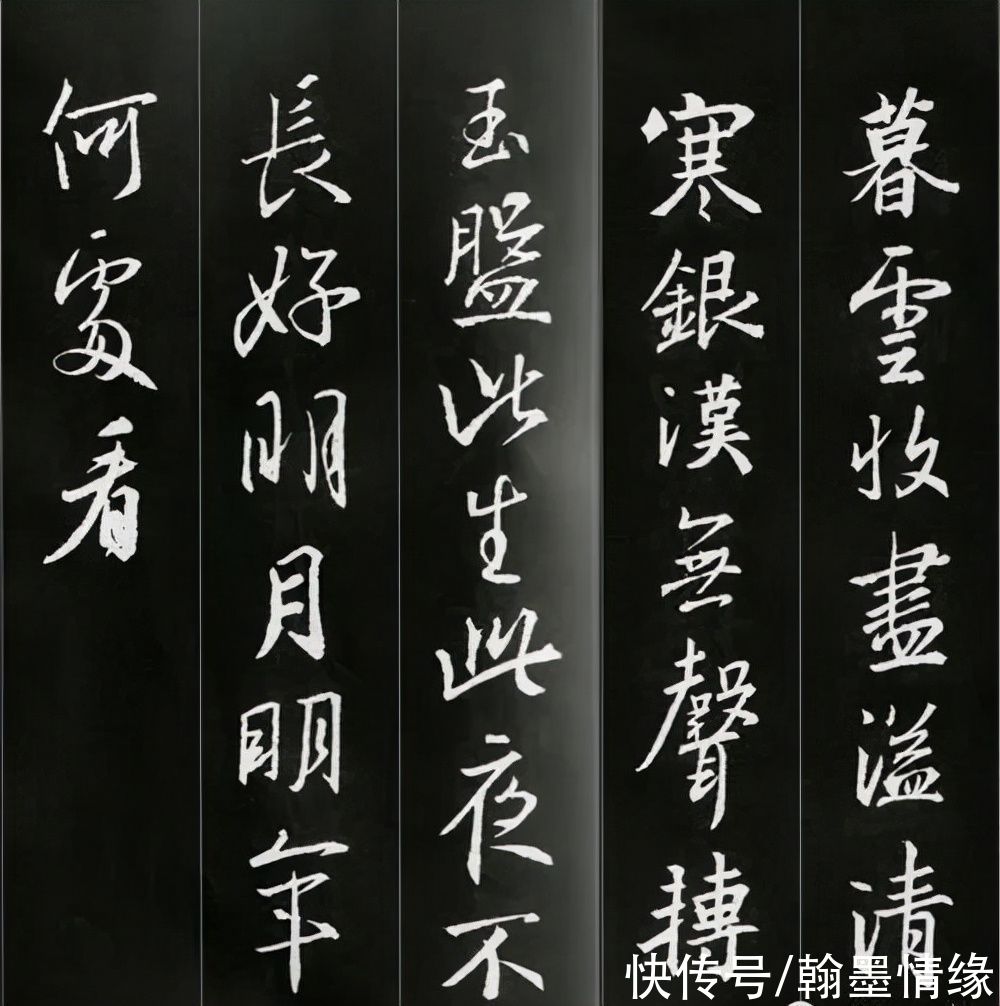 暮雲收盡溢清
寒銀漢無聲轉
玉盤此生此夜不
長好明月明年
何處看
快传号/翰墨情缘